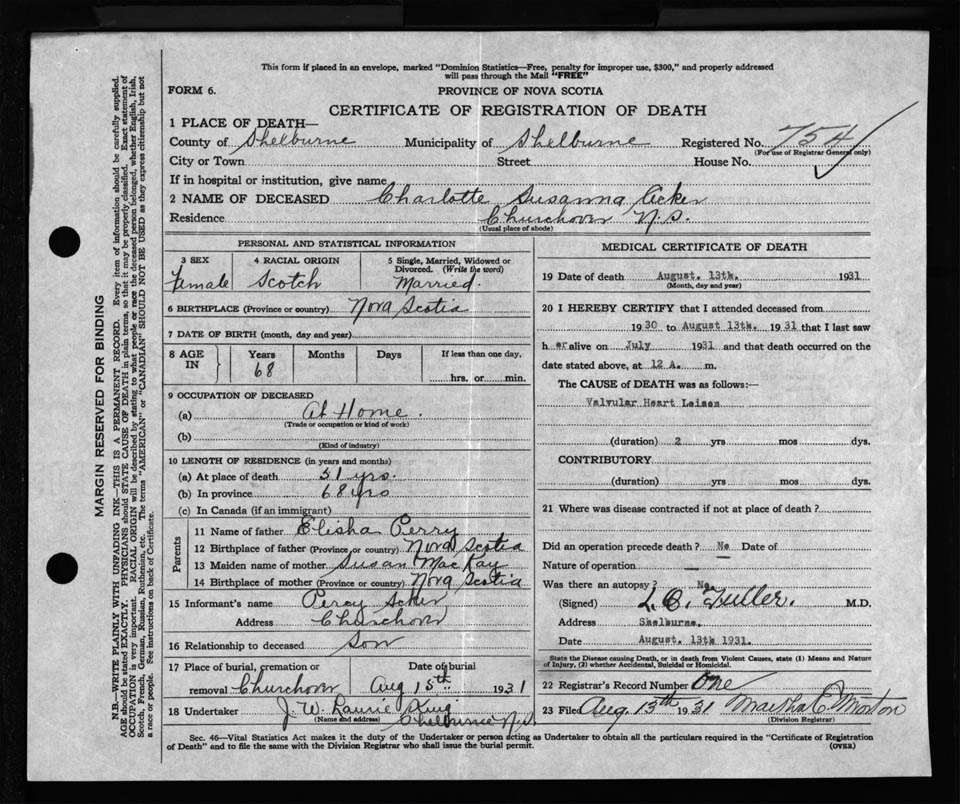 This form if placed in an envelope, marked "Dominion Statistics—Free, penalty for improper use, $300," and properly addressed
will pass through the Mail "FREE"
FORM 6. PROVINCE OF NOVA SCOTIA
CERTIFICATE OF REGISTRATION OF DEATH
1 PLACE OF DEATH—
County of Shelburne Municipality of Shelburne Registered No. 754
(For use of Registrar General only)
City or Town Street House No.
If in hospital or institution, give name
2 NAME OF DECEASED Charlotte Susanna Acker
Residence Churchover N.S.
(Usual place of abode)
PERSONAL AND STATISTICAL INFORMATION
3 SEX 4 RACIAL ORIGIN 5 Single, Married, Widowed or
Divorced. (Write the word)
Female Scotch Married.
6 BIRTHPLACE (Province or country) Nova Scotia
7 DATE OF BIRTH (month, day and year)
8 AGE IN Years Months Days If less than one day,
68 hrs. or min.
9 OCCUPATION OF DECEASED
(a) At Home.
(Trade or occupation or kind of work)
(b)
(Kind of industry)
10 LENGTH OF RESIDENCE (in years and months)
(a) At place of death 51 yrs.
(b) In province 68 yrs
(c) In Canada (if an immigrant)
Parents
11 Name of father Elisha Perry
12 Birthplace of father (Province or country) Nova Scotia
13 Maiden name of mother Susan MacKay
14 Birthplace of mother (Province or country) Nova Scotia
15 Informant's name Percy Acker
Address Churchover
16 Relationship to deceased Son
17 Place of burial, cremation or Date of burial
removal Churchover Aug 15th 1931
18 Undertaker J. W. King
(Name and address) Shelburne N.S.
MEDICAL CERTIFICATE OF DEATH
19 Date of death August. 13th. 1931
(Month, day and year)
20 I HEREBY CERTIFY that I attended deceased from
1930 to August 13th. 1931 that I last saw
her alive on July 1931 and that death occurred on the
date stated above, at 12 A. m.
The CAUSE of DEATH was as follows:—
Valvular Heart Leison
(duration) 2 yrs mos dys.
CONTRIBUTORY
(duration) yrs mos dys.
21 Where was disease contracted if not at place of death?
Did an operation precede death? No Date of
Nature of operation —
Was there an autopsy? No
(Signed) L. C. Fuller. M.D.
Address Shelburne.
Date August. 13th 1931.
State the Disease causing Death, or in death from Violent Causes, state (1) Means and Nature
of Injury, (2) whether Accidental, Suicidal or Homicidal.
22 Registrar's Record Number One
23 Filed Aug 13th 1931 Martha C. Morton
(Division Registrar)
Sec. 46—Vital Statistics Act makes it the duty of the Undertaker or person acting as Undertaker to obtain all the particulars required in the "Certificate of Registration
of Death" and to file the same with the Division Registrar who shall issue the burial permit. (OVER)
MARGIN RESERVED FOR BINDING
N.B.—WRITE PLAINLY WITH UNFADING INK—THIS IS A PERMANENT RECORD. Every item of information should be carefully supplied.
AGE should be stated EXACTLY. PHYSICIANS should STATE CAUSE OF DEATH in plain terms, so that it may be properly classified. Exact statement of
OCCUPATION is very important. RACIAL ORIGIN will be described by stating to what people or race the deceased person belonged, whether English, Irish,
Scotch, French, German, Russian, Ruthenian, etc. The terms "AMERICAN" or "CANADIAN" SHOULD NOT BE USED as they express citizenship but not
a race or people. See instructions on back of Certificate.